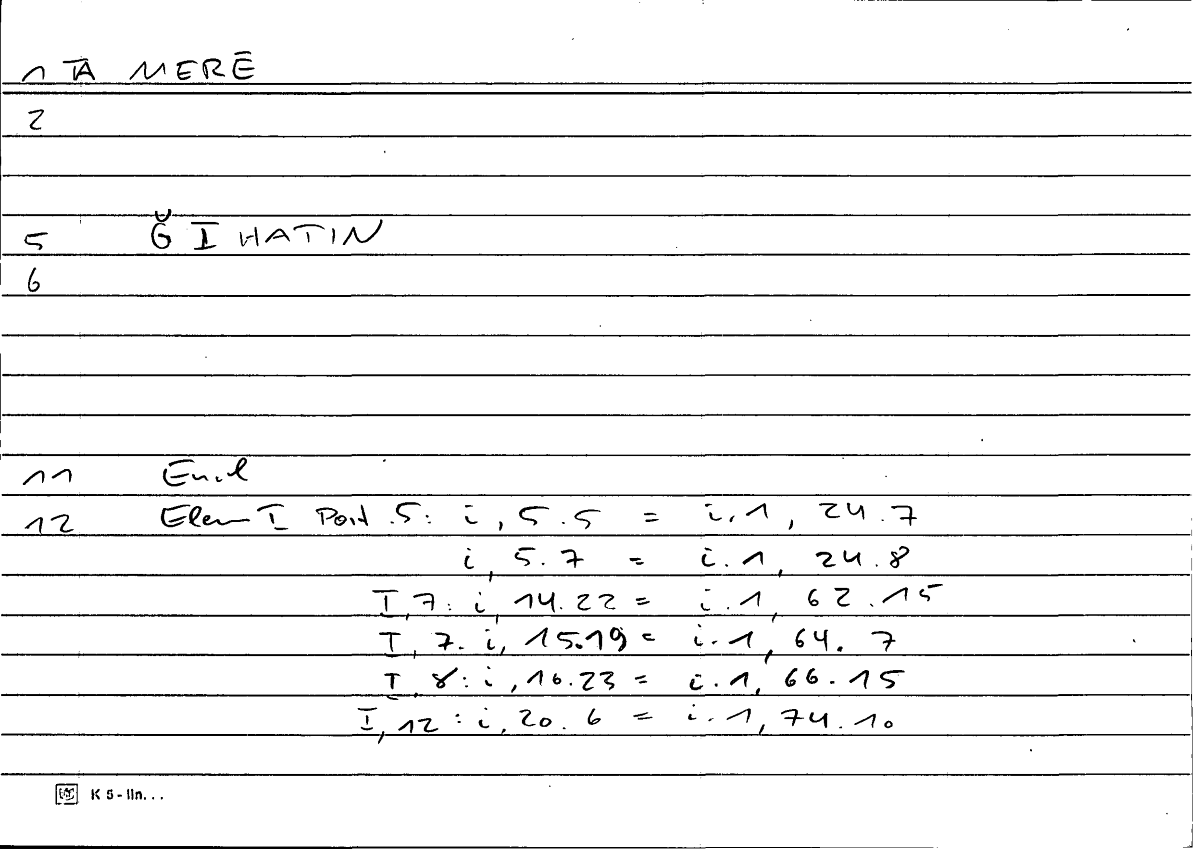 1 TĀ MERĒ
2
5 Ğ I HATIN
6
11 Eucl
12 Elem I Post .5: i, 5.5 = i.1, 24.7
i, 5.7 = i.1, 24.8
I, 7: i, 14.22 = i.1, 62.15
I, 7. i, 15.19 = i.1, 64.7
I, 8: i, 16.23 = i.1, 66.15
I, 12: i, 20.6 = i.1, 74.10
K 5 - lin...